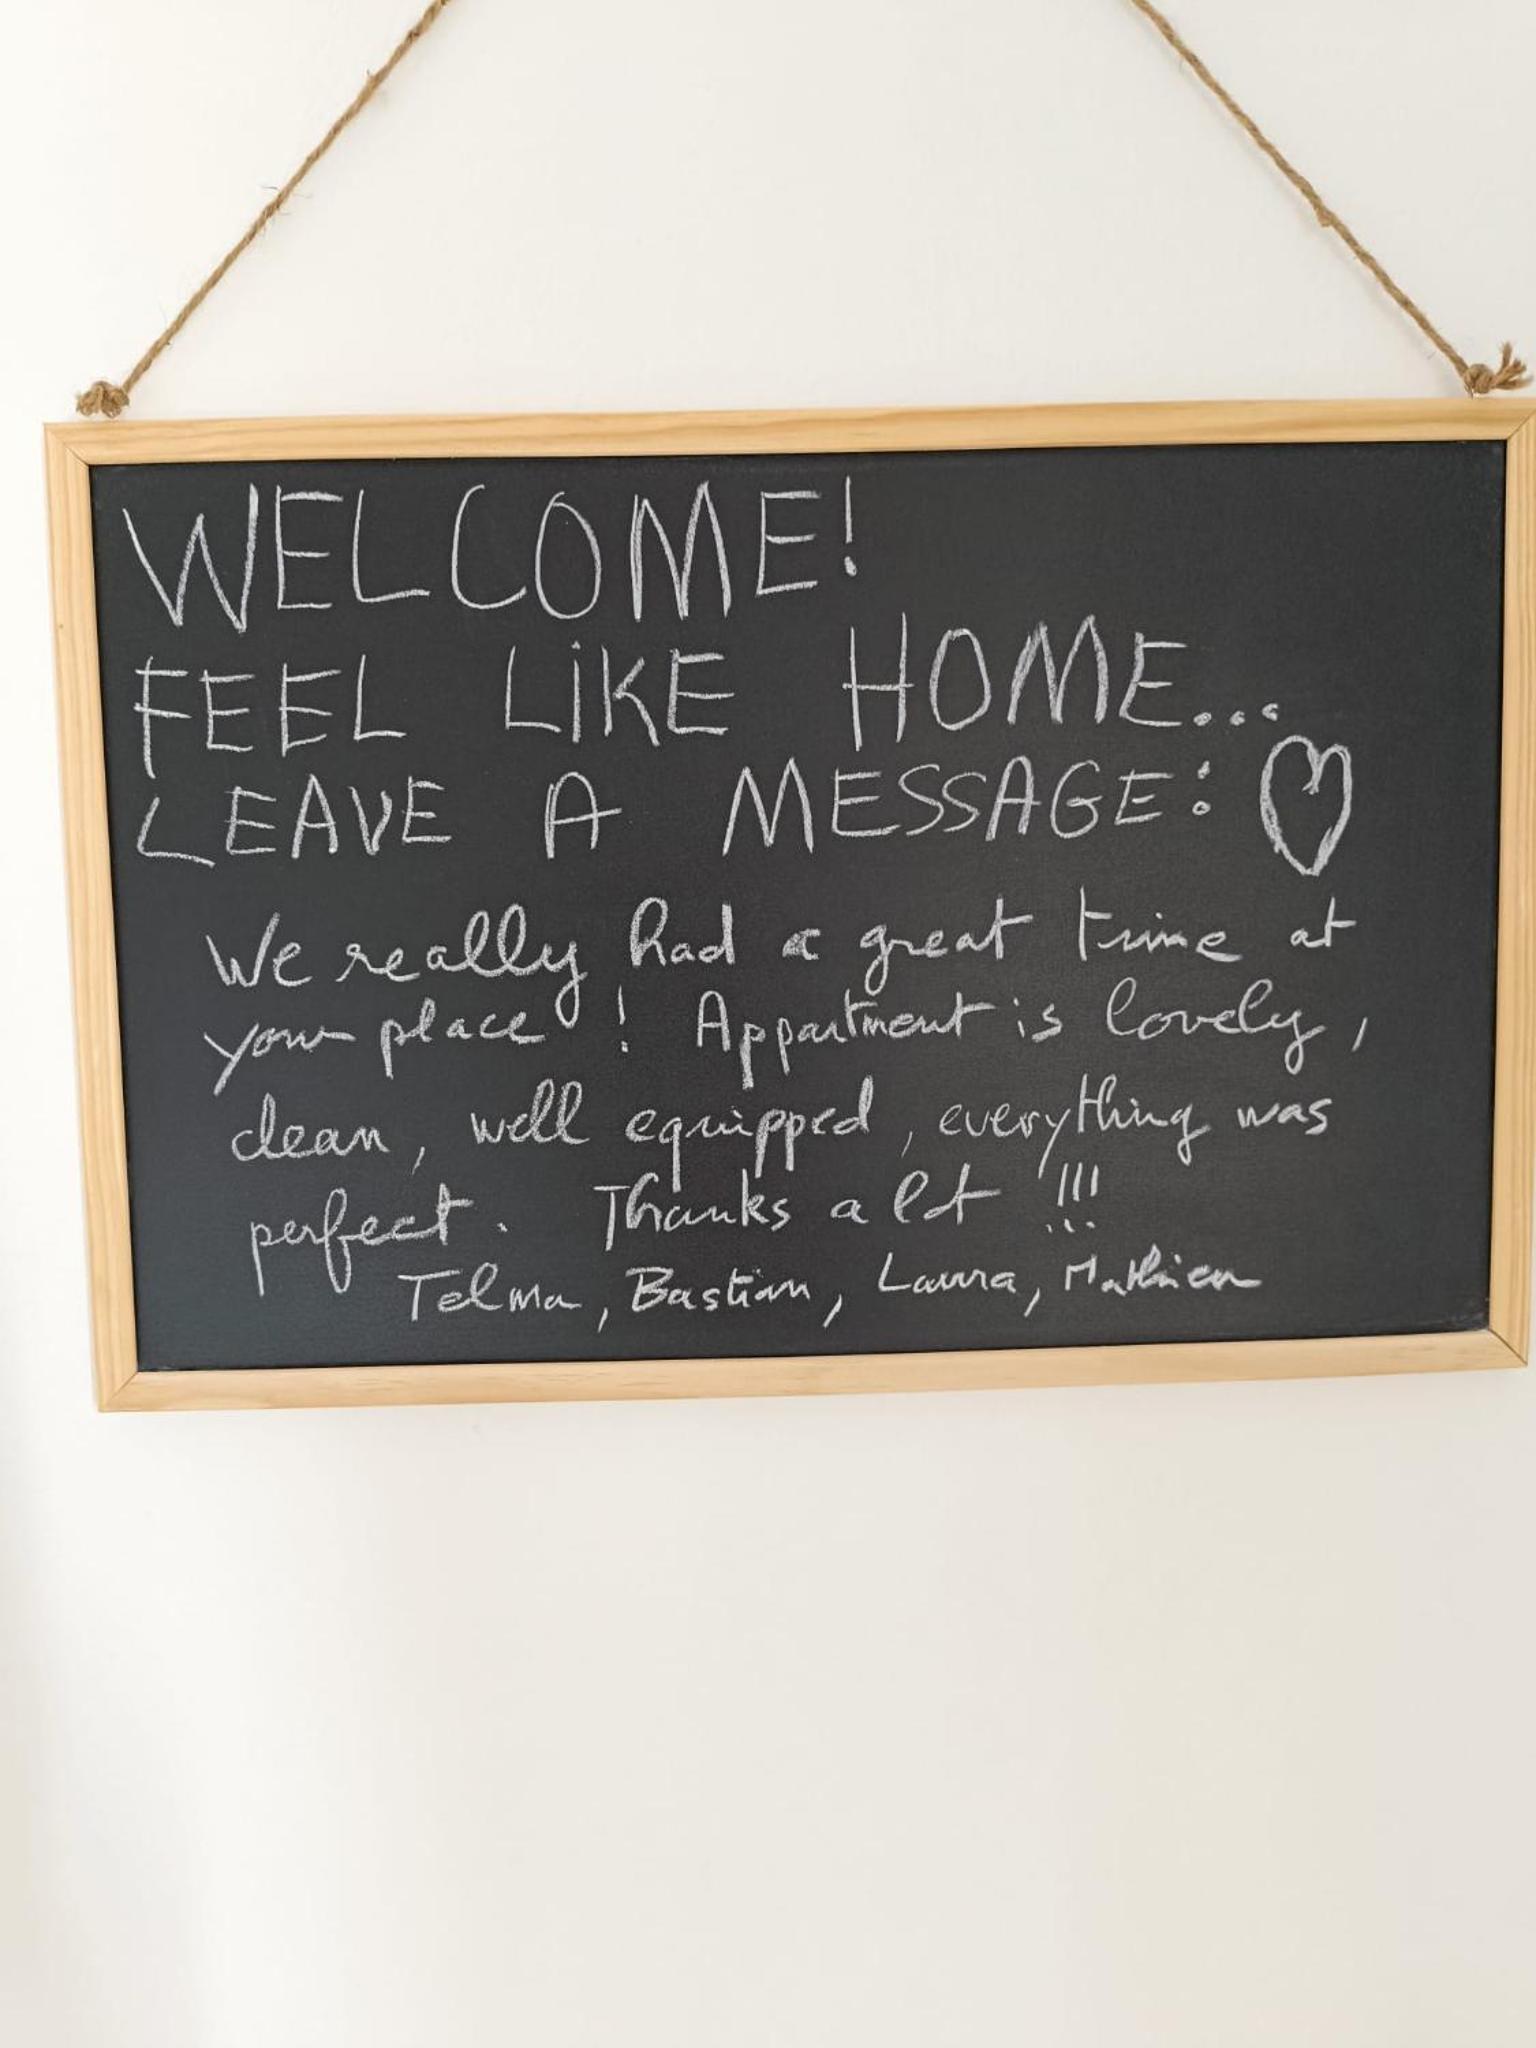 WELCOME!
FEEL LIKE HOME...
LEAVE A MESSAGE: ♡
We really had a great time at
your place ! Appartment is lovely,
clean, well equipped, everything was
perfect. Thanks a lot !!!
Telma, Bastian, Laura, Mathieu